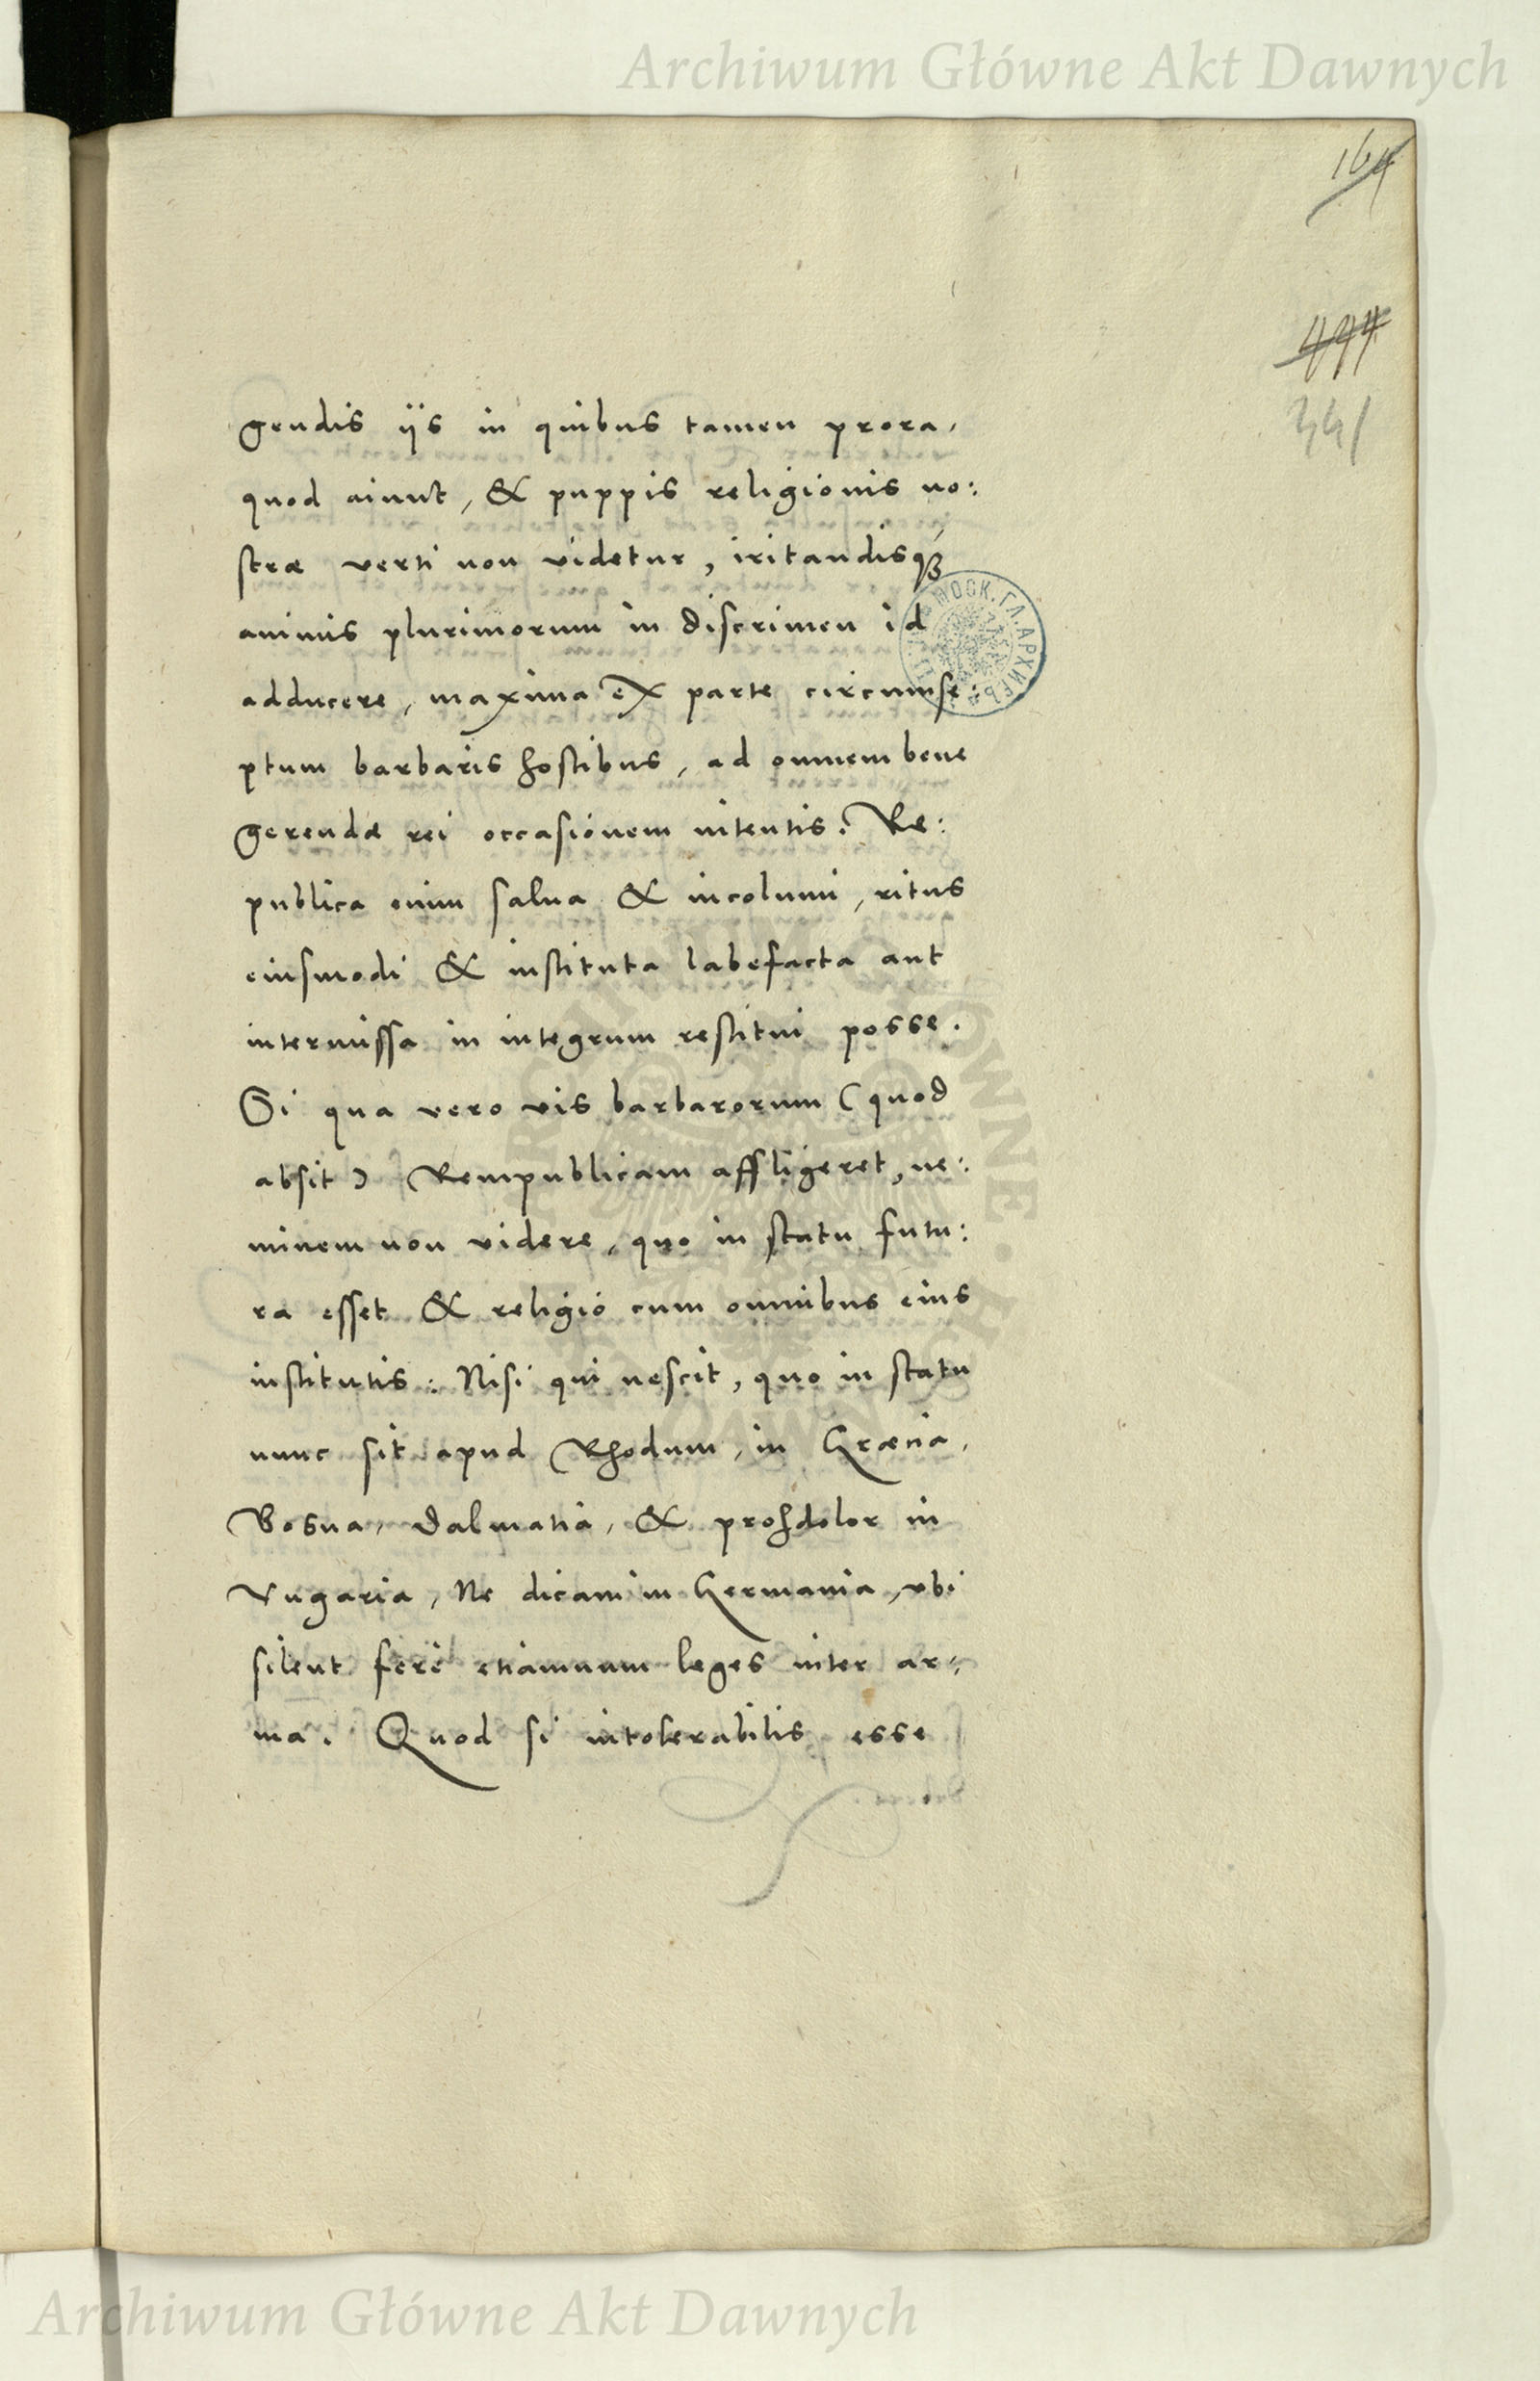 Archiwum Główne Akt Dawnych
164
494
341
gendis ijs in quibus tamen prora,
quod aiunt, & puppis religionis no:
stræ verti non videtur, iritandisqꝫ
animis plurimorum in discrimen id
adducere, maxima ex parte circumse:
ptum barbaris hostibus, ad omnem bene
gerendæ rei occasionem intentis. Re:
publica enim salua & incolumi, ritus
eiusmodi & instituta labefacta aut
intermissa in integrum restitui posse.
Si qua vero vis barbarorum (quod
absit) Rempublicam affligeret, ne:
minem non videre, quo in statu futu:
ra esset & religio cum omnibus eius
institutis: Nisi qui nescit, quo in statu
nunc sit apud Rhodum, in Græcia,
Bosna, Dalmatia, & prohdolor in
Vngaria, Ne dicam in Germania, vbi
silent ferè etiamnum leges inter ar:
ma. Quod si intolerabilis esse
Archiwum Główne Akt Dawnych